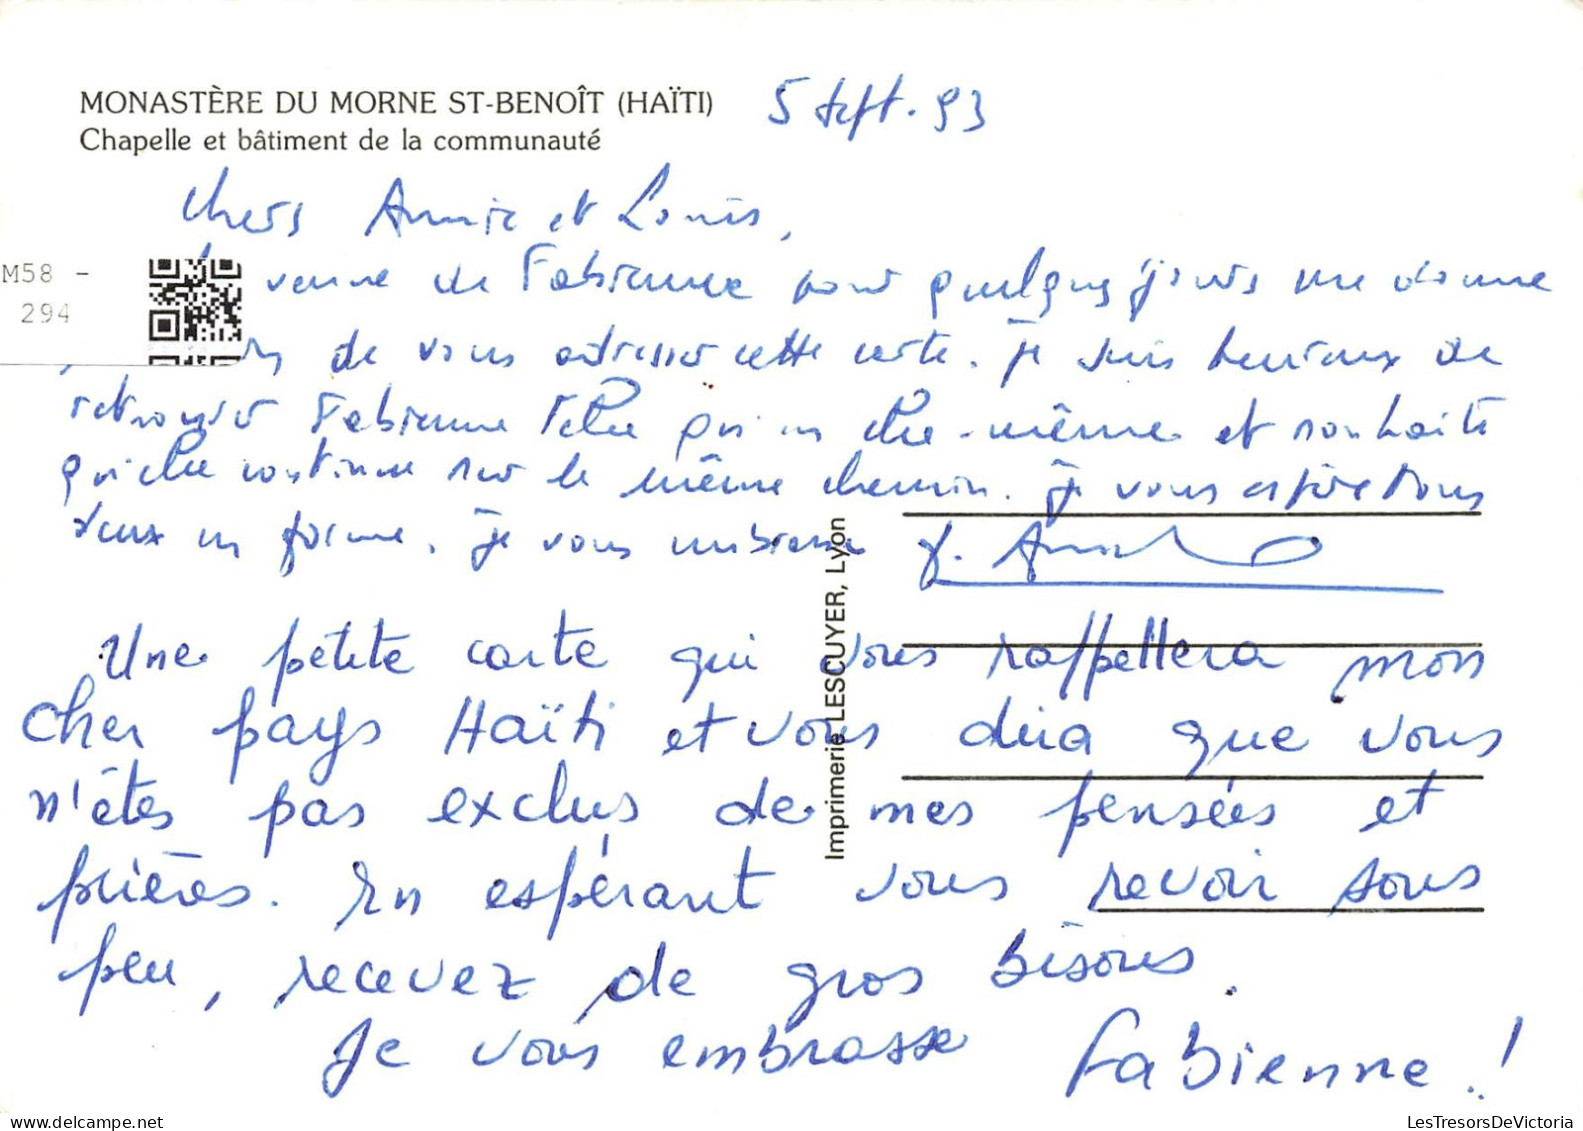 MONASTÈRE DU MORNE ST-BENOÎT (HAÏTI)
Chapelle et bâtiment de la communauté
5 Sept. 93
Chers Annie et Louis,
venue de Fabienne pour quelques jours me donne
de vous adresser cette carte. Je suis heureux de
retrouver Fabienne telle qu'en elle-même et souhaite
qu'elle continue sur le même chemin. Je vous espère tous
deux en forme. Je vous embrasse
M58 -
294
Imprimerie LESCUYER, Lyon
Une petite carte qui vous rappellera mon
cher pays Haïti et vous dira que vous
n'êtes pas exclus de mes pensées et
prières. En espérant vous revoir sous
peu, recevez de gros bisous.
Je vous embrasse Fabienne !
LesTresorsDeVictoria